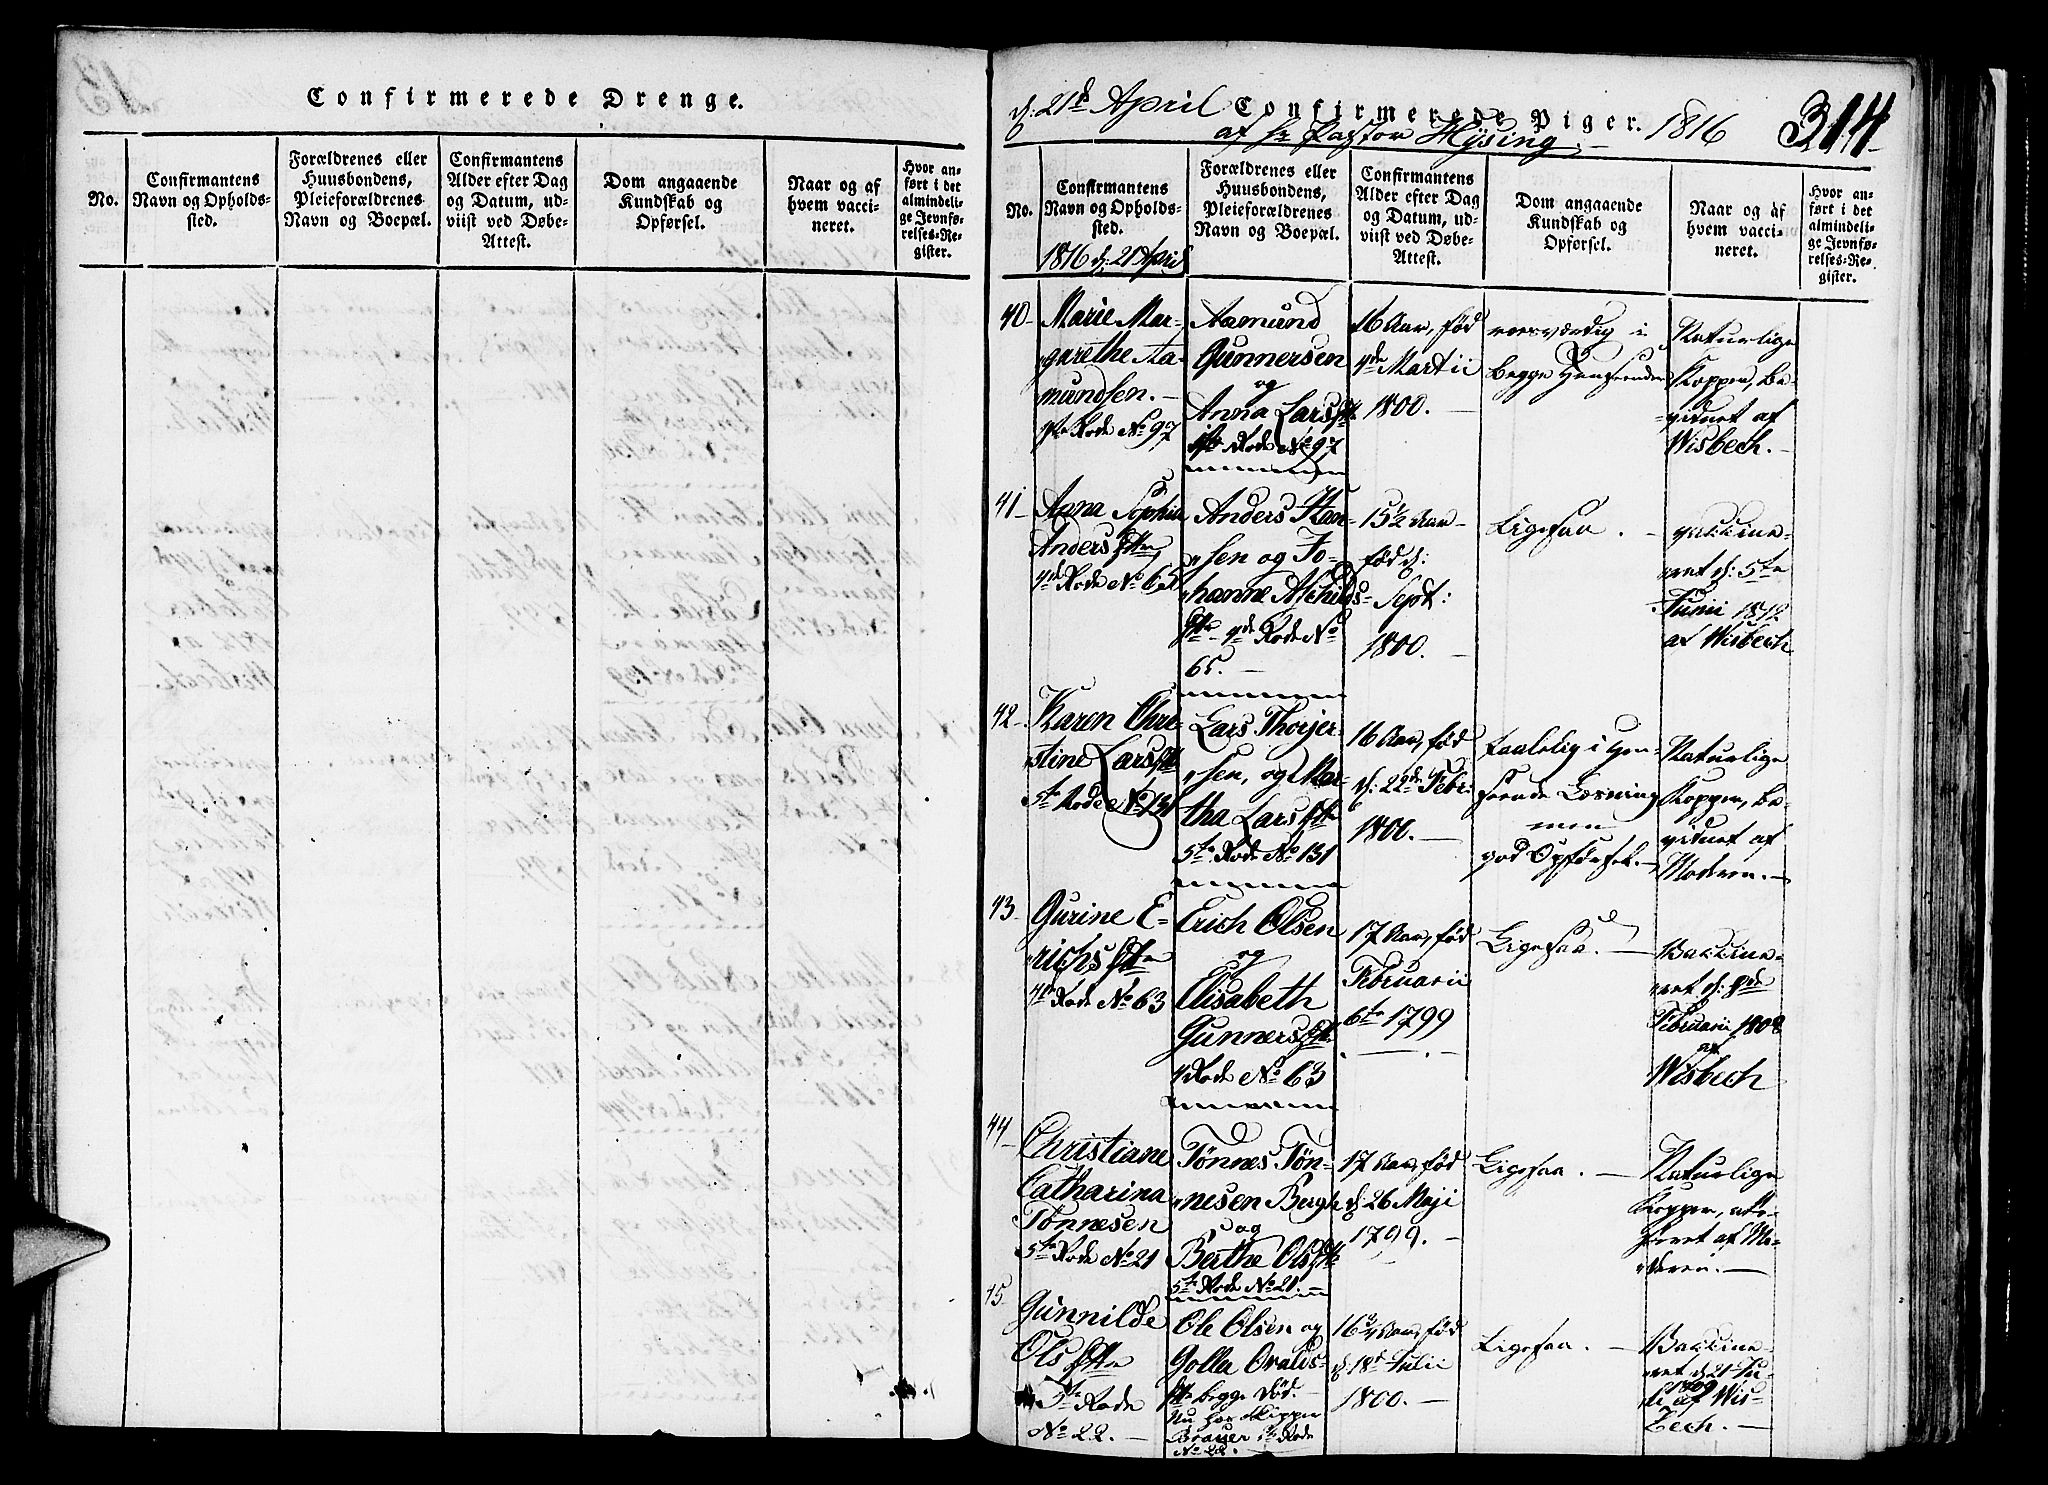 Confirmerede Drenge.
No.
Confirmantens
Navn og Opholds-
sted.
Forældrenes eller
Huusbondens,
Pleieforældrenes
Navn og Boepæl.
Confirmantens
Alder efter Dag
og Datum, ud-
viist ved Døbe-
Attest.
Dom angaaende
Kundskab og
Opførsel.
Naar og af
hvem vacci-
neret.
Hvor an-
ført i det
almindeli-
ge Jevnfø-
relses-Re-
gister.
d: 21d April Confirmerede Piger. 1816 314
af Hr Pastor Hysing.
No.
Confirmantens
Navn og Opholds-
sted.
1816 d: 21 April
Forældrenes eller
Huusbondens,
Pleieforældrenes
Navn og Boepæl.
Confirmantens
Alder efter Dag
og Datum, ud-
viist ved Døbe-
Attest.
Dom angaaende
Kundskab og
Opførsel.
Naar og af
hvem vacci-
neret.
Hvor an-
ført i det
almindeli-
ge Jevnfø-
relses-Re-
gister.
40
Marie Mar-
garethe Aa-
mundsen.
4de Rode No 97
Aamund
Gunnersen
og
Anna Larsdtr
Rode No 97
16 Aar, fød
4de Martii
1800.
roesværdig i
begge Henseender
Naturlige
Kopper, be-
vidnet af
Wisbech.
41
Anna Sophie
Andersdtr
4de Rode No 65
Anders Han-
sen og Jo-
hanne Aschilds-
dtr 4de Rode No
65.
15½ Aar
fød d:
Sept:
1800.
Ligesaa.
vakkine-
ret d: 5te
Junii 1812
af Wisbech
42
Karen Chri-
stine Larsdtr
5te Rode No 131
Lars Thorjer-
sen, og Mar-
tha Larsdtr
5te Rode No 131
16 Aar, fød
d: 22de Febr
1800.
taalelig i Hen-
seende Læsning
men
god Opførsel.
Naturlige
Kopper, be-
vidnet af
Moderen.
43
Gurine E-
richsdtr
4de Rode No 63
Erich Olsen
og
Elisabeth
Gunnersdtr
4 Rode No 63
17 Aar, fød
Februarii
6te 1799
Ligesaa.
Vakkine-
ret d:
Februarii 1808
af
Wisbech
44
Christiane
Catharina
Tønnesen
5te Rode No 21
Tønnes Tøn-
nesen Bergh
og
Berthe Olsdtr
5te Rode No 21
17 Aar, fød
d: 26 Maji
1799.
Ligesaa.
Naturlige
Kopper, ate-
steret af Mo-
deren.
45
Gunnilde
Olsdtr
5te Rode
No 22.
Ole Olsen og
Golla
dtr begge død.
Nu hos Skipper
Brauer Rode
No 22.
16 Aar, fød
d: 18d Julii
1800.
Ligesaa.
Vakkine-
ret d 21 Ju-
li 1809 af Wis-
bech.